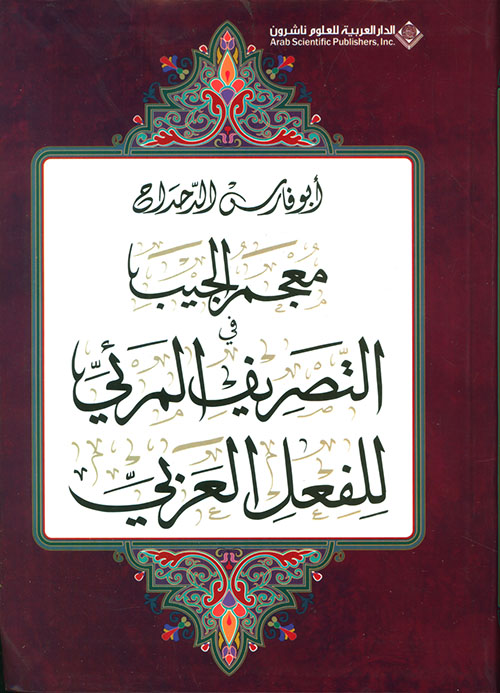 الدار العربية للعلوم ناشرون
Arab Scientific Publishers, Inc.
أبو فارس الدحداح
معجم الجيب
في
التصريف المرئي
للفعل العربي